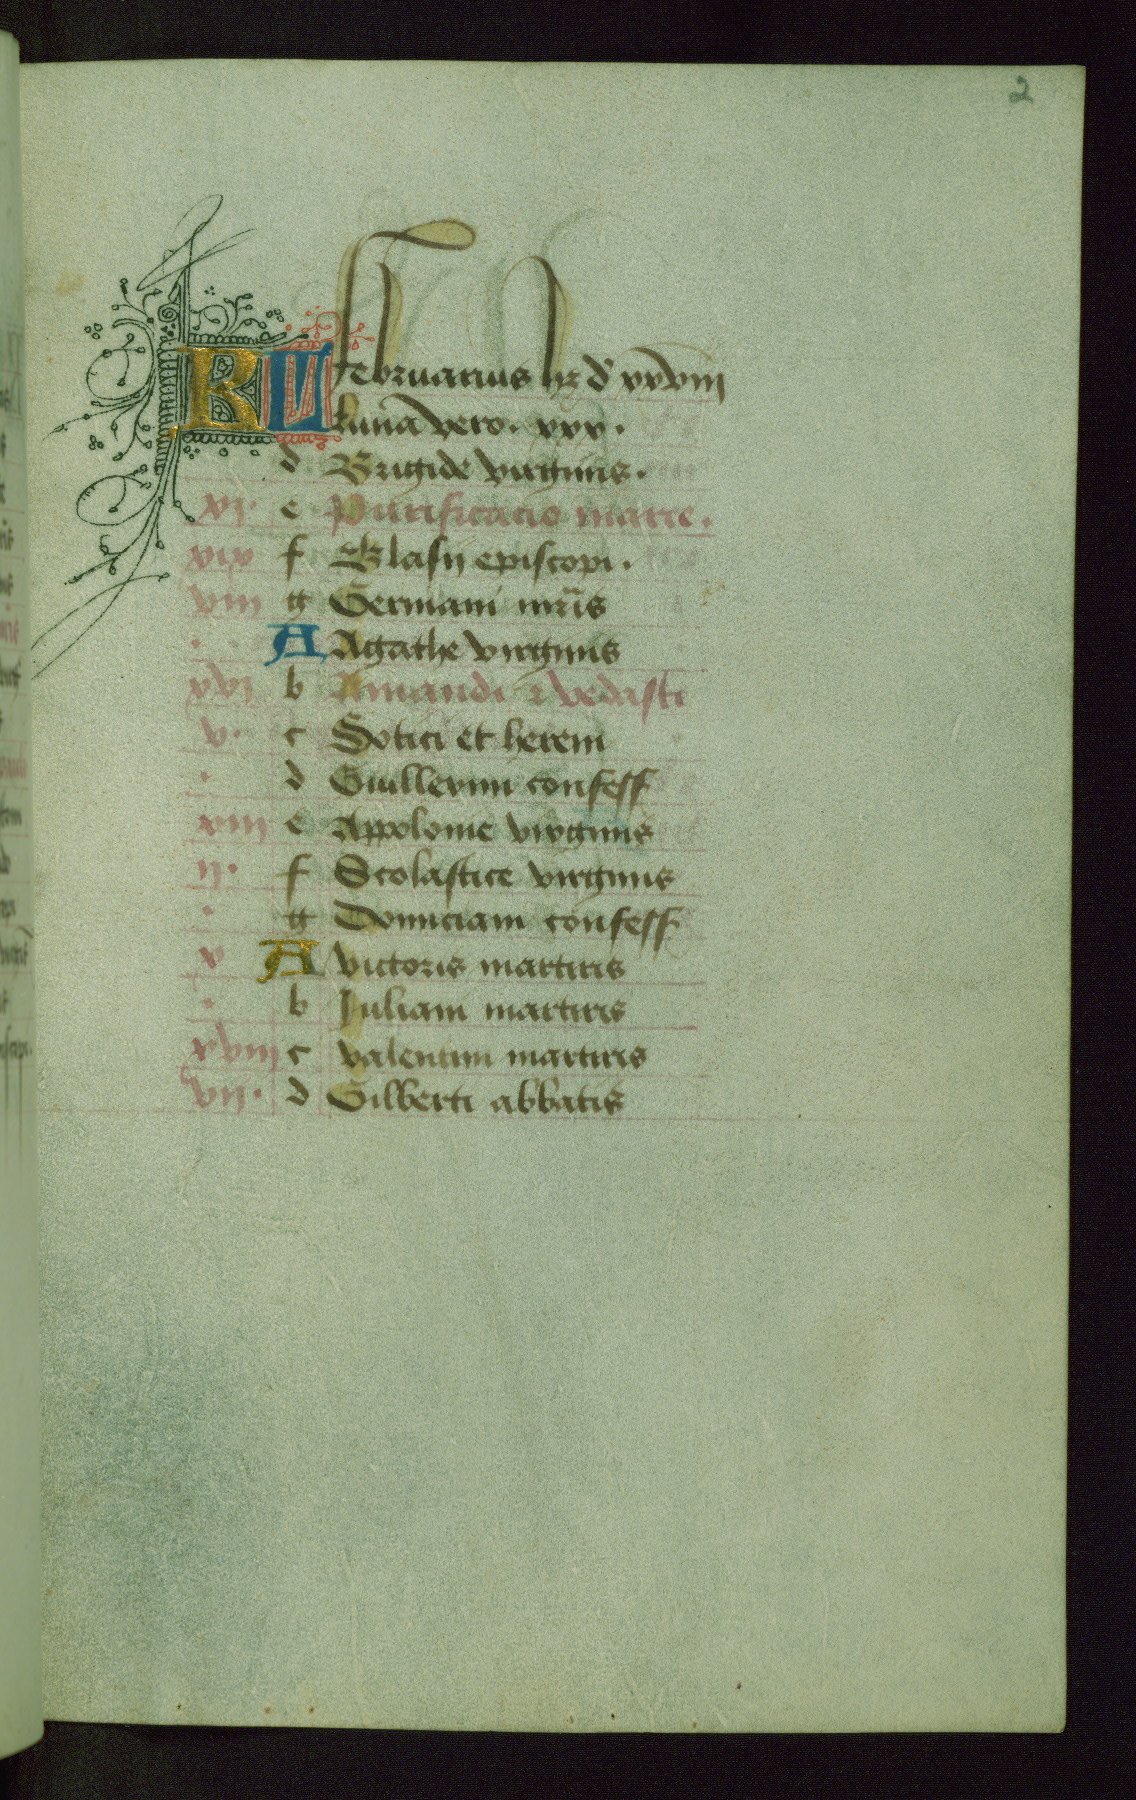 2
KL Februarius hꝫ d' xxviii
luna vero. xxx.
d Brigide virginis.
xi. e Purificatio marie.
xix f Blasii episcopi.
viii g Germani mr̃is
. A Agathe virginis
xvi b Amandi ⁊ vedasti
v. c Sotici et herem
. d Guillermi confess
xiii e Appolonie virginis
ii. f Scolastice virginis
. g Domiciani confess
x A victoris martiris
. b Juliani martiris
xviii c valentini martiris
vii. d Gilberti abbatis